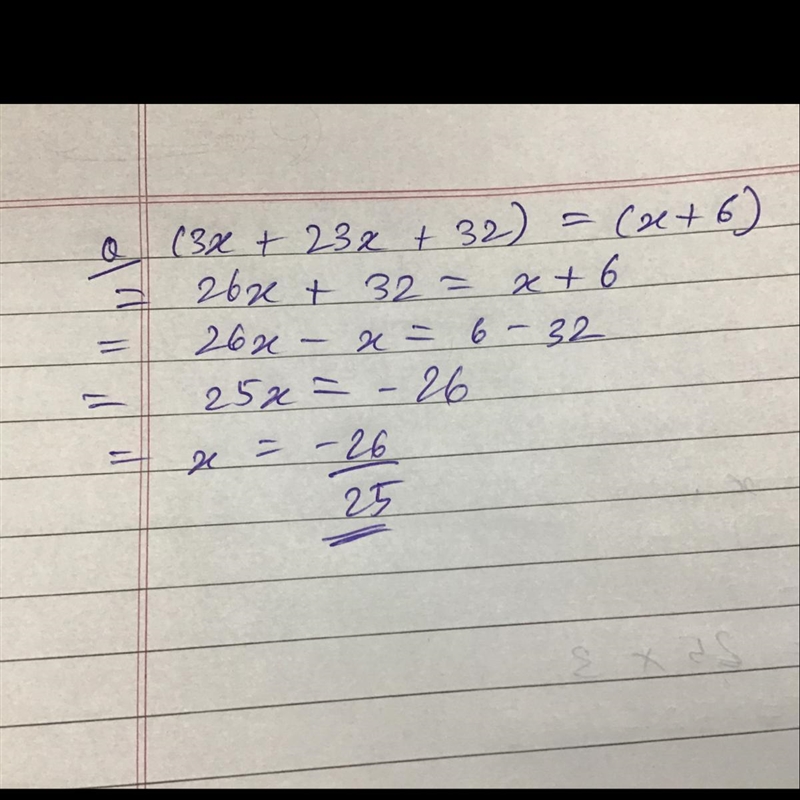 Q (3x + 23x + 32) = (x + 6)
= 26x + 32 = x + 6
= 26x - x = 6 - 32
= 25x = - 26
= x = -26
25